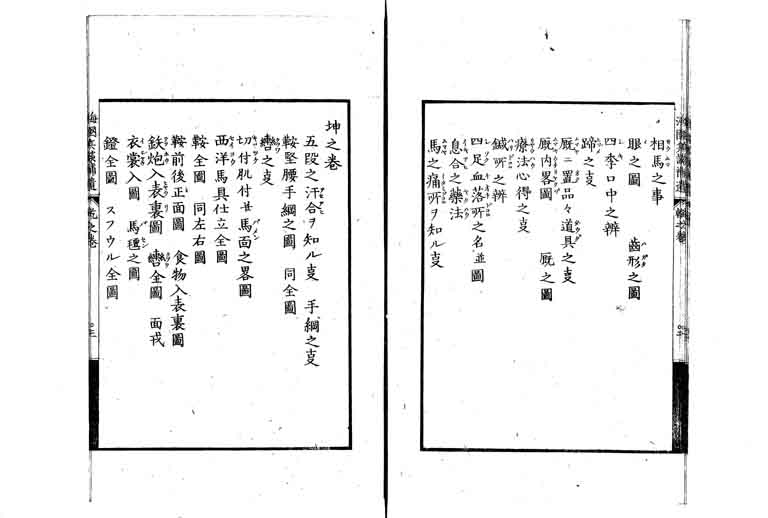 相馬之事
眼之圖 齒形之圖
四季口中之辨
蹄之叓
厩ニ置品々道具之叓
厩内畧圖 厩之圖
療法心得之叓
鍼所之辨
四足血落所之名並圖
息合之藥法
馬之痛所ヲ知ル叓
坤之卷
五段之汗合ヲ知ル叓 手綱之叓
鞍堅腰手綱之圖 同全圖
轡之叓
切付肌付並馬面之畧圖
西洋馬具仕立全圖
鞍全圖 同左右圖
鞍前後正面圖 食物入表裏圖
鉄炮入表裏圖 轡全圖 面戎
衣裳入圖 馬氊之圖
鐙全圖 スフウル全圖